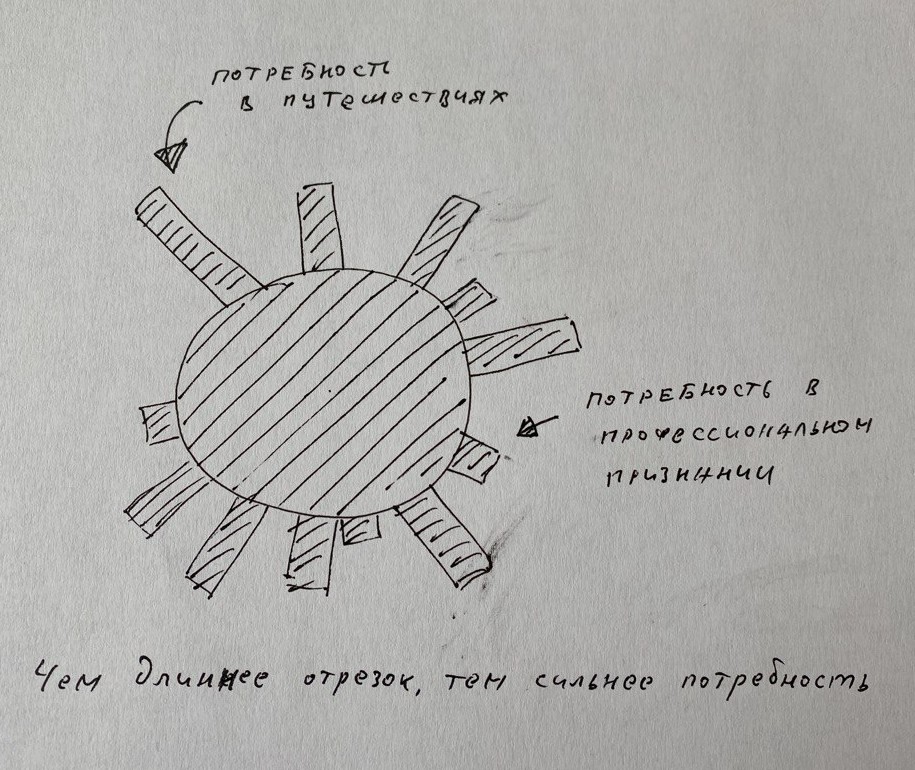 ПОТРЕБНОСТЬ
В ПУТЕШЕСТВИЯХ
ПОТРЕБНОСТЬ В
ПРОФЕССИОНАЛЬНОМ
ПРИЗНАНИИ
Чем длиннее отрезок, тем сильнее потребность